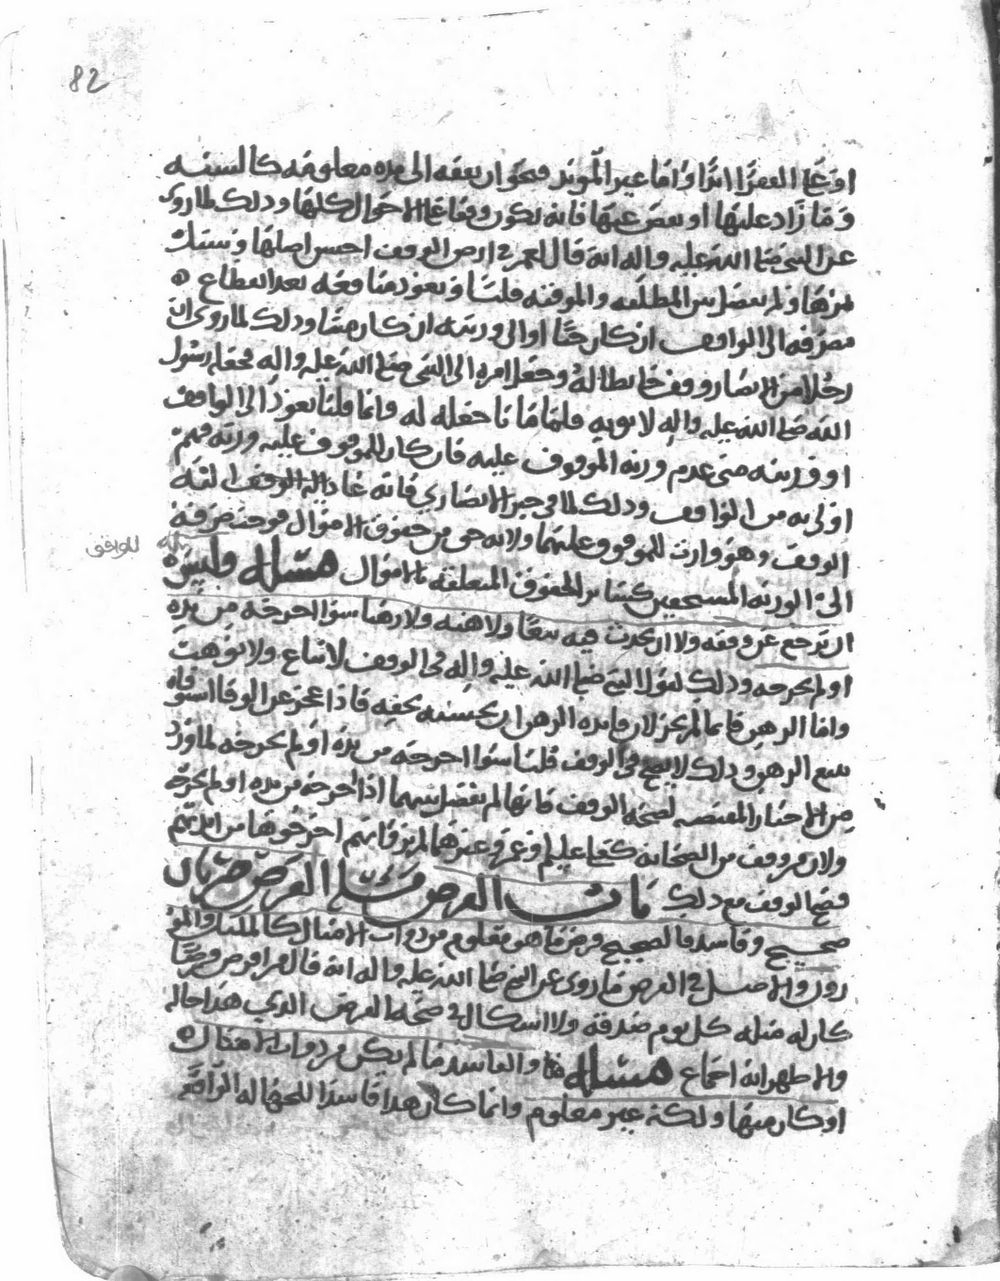 82
او على الفقراء ابدا واما غير المؤبد فنحو ان يقفه الى مدة معلومة كالسنة
وما زاد عليها او نقص عنها فانه يكون وقفا على الاحوال كلها وذلك لما روي
عن النبي صلى الله عليه واله انه قال لعمر في ارض الوقف احبس اصلها وسبل
ثمرها ولم يفصل بين المطلقه والموقته قلنا وتعود منافعه بعد انقطاع
مصرفه الى الواقف ان كان حيا او الى ورثته ان كان ميتا وذلك لما روي ان
رجلا من الانصار وقف حائطا له وجعل امره الى النبي صلى الله عليه واله فجعله رسول
الله صلى الله عليه واله لابويه فلما ماتا جعله له وانما قلنا تعود الى الواقف
او ورثته متى عدم ورثة الموقوف عليه فان كان للموقوف عليه ورثه فهم
اولى به من الواقف وذلك لما في خبر الانصاري فانه عاد اليه الوقف
الوقف وهو وارث للموقوف عليهما ولانه حق من حقوق الاموال فوجب صرفه
للواقف
الى الورثة المستحقين كسائر الحقوق المتعلقة بالاموال مسئلة وليس له
ان يرجع عن وقفه ولا ان يحدث فيه بيعا ولا هبه ولا رهنا سواء اخرجه من يده
او لم يخرجه وذلك لقول النبي صلى الله عليه واله في الوقف لا تباع ولا توهب
واما الرهن فانما لم يجز لان فائدة الرهن ان يحبسه بحقه فاذا عجز عن الوفا استوفاه
ببيع الرهن وذلك لا يصح في الوقف قلنا سواء اخرجه من يده او لم يخرجه لما ورد
من الاخبار المقتضيه لصحة الوقف فانها لم تفصل بينهما اذا اخرجه من يده او لم يخرجه
ولان من وقف من الصحابه كعلي عليلم وعمر وغيرهما لم يرو انهم اخرجوها من ايديهم
فصح الوقف مع ذلك باب القرض مسئلة القرض ضربان
صحيح وفاسد فالصحيح قرض ما هو معلوم من ذوات الامثال كالمكيل والموز
ون والاصل في القرض ما روي عن النبي صلى الله عليه واله انه قال من اقرض قرضا
كان له مثله كل يوم صدقة ولا اشكال في صحة القرض الذي هذا حاله
والاظهر انه اجماع مسئلة والفاسد ما لم يكن من ذوات الامثال
او كان منها ولكنه غير معلوم وانما كان هذا فاسدا للجهالة الواقعة